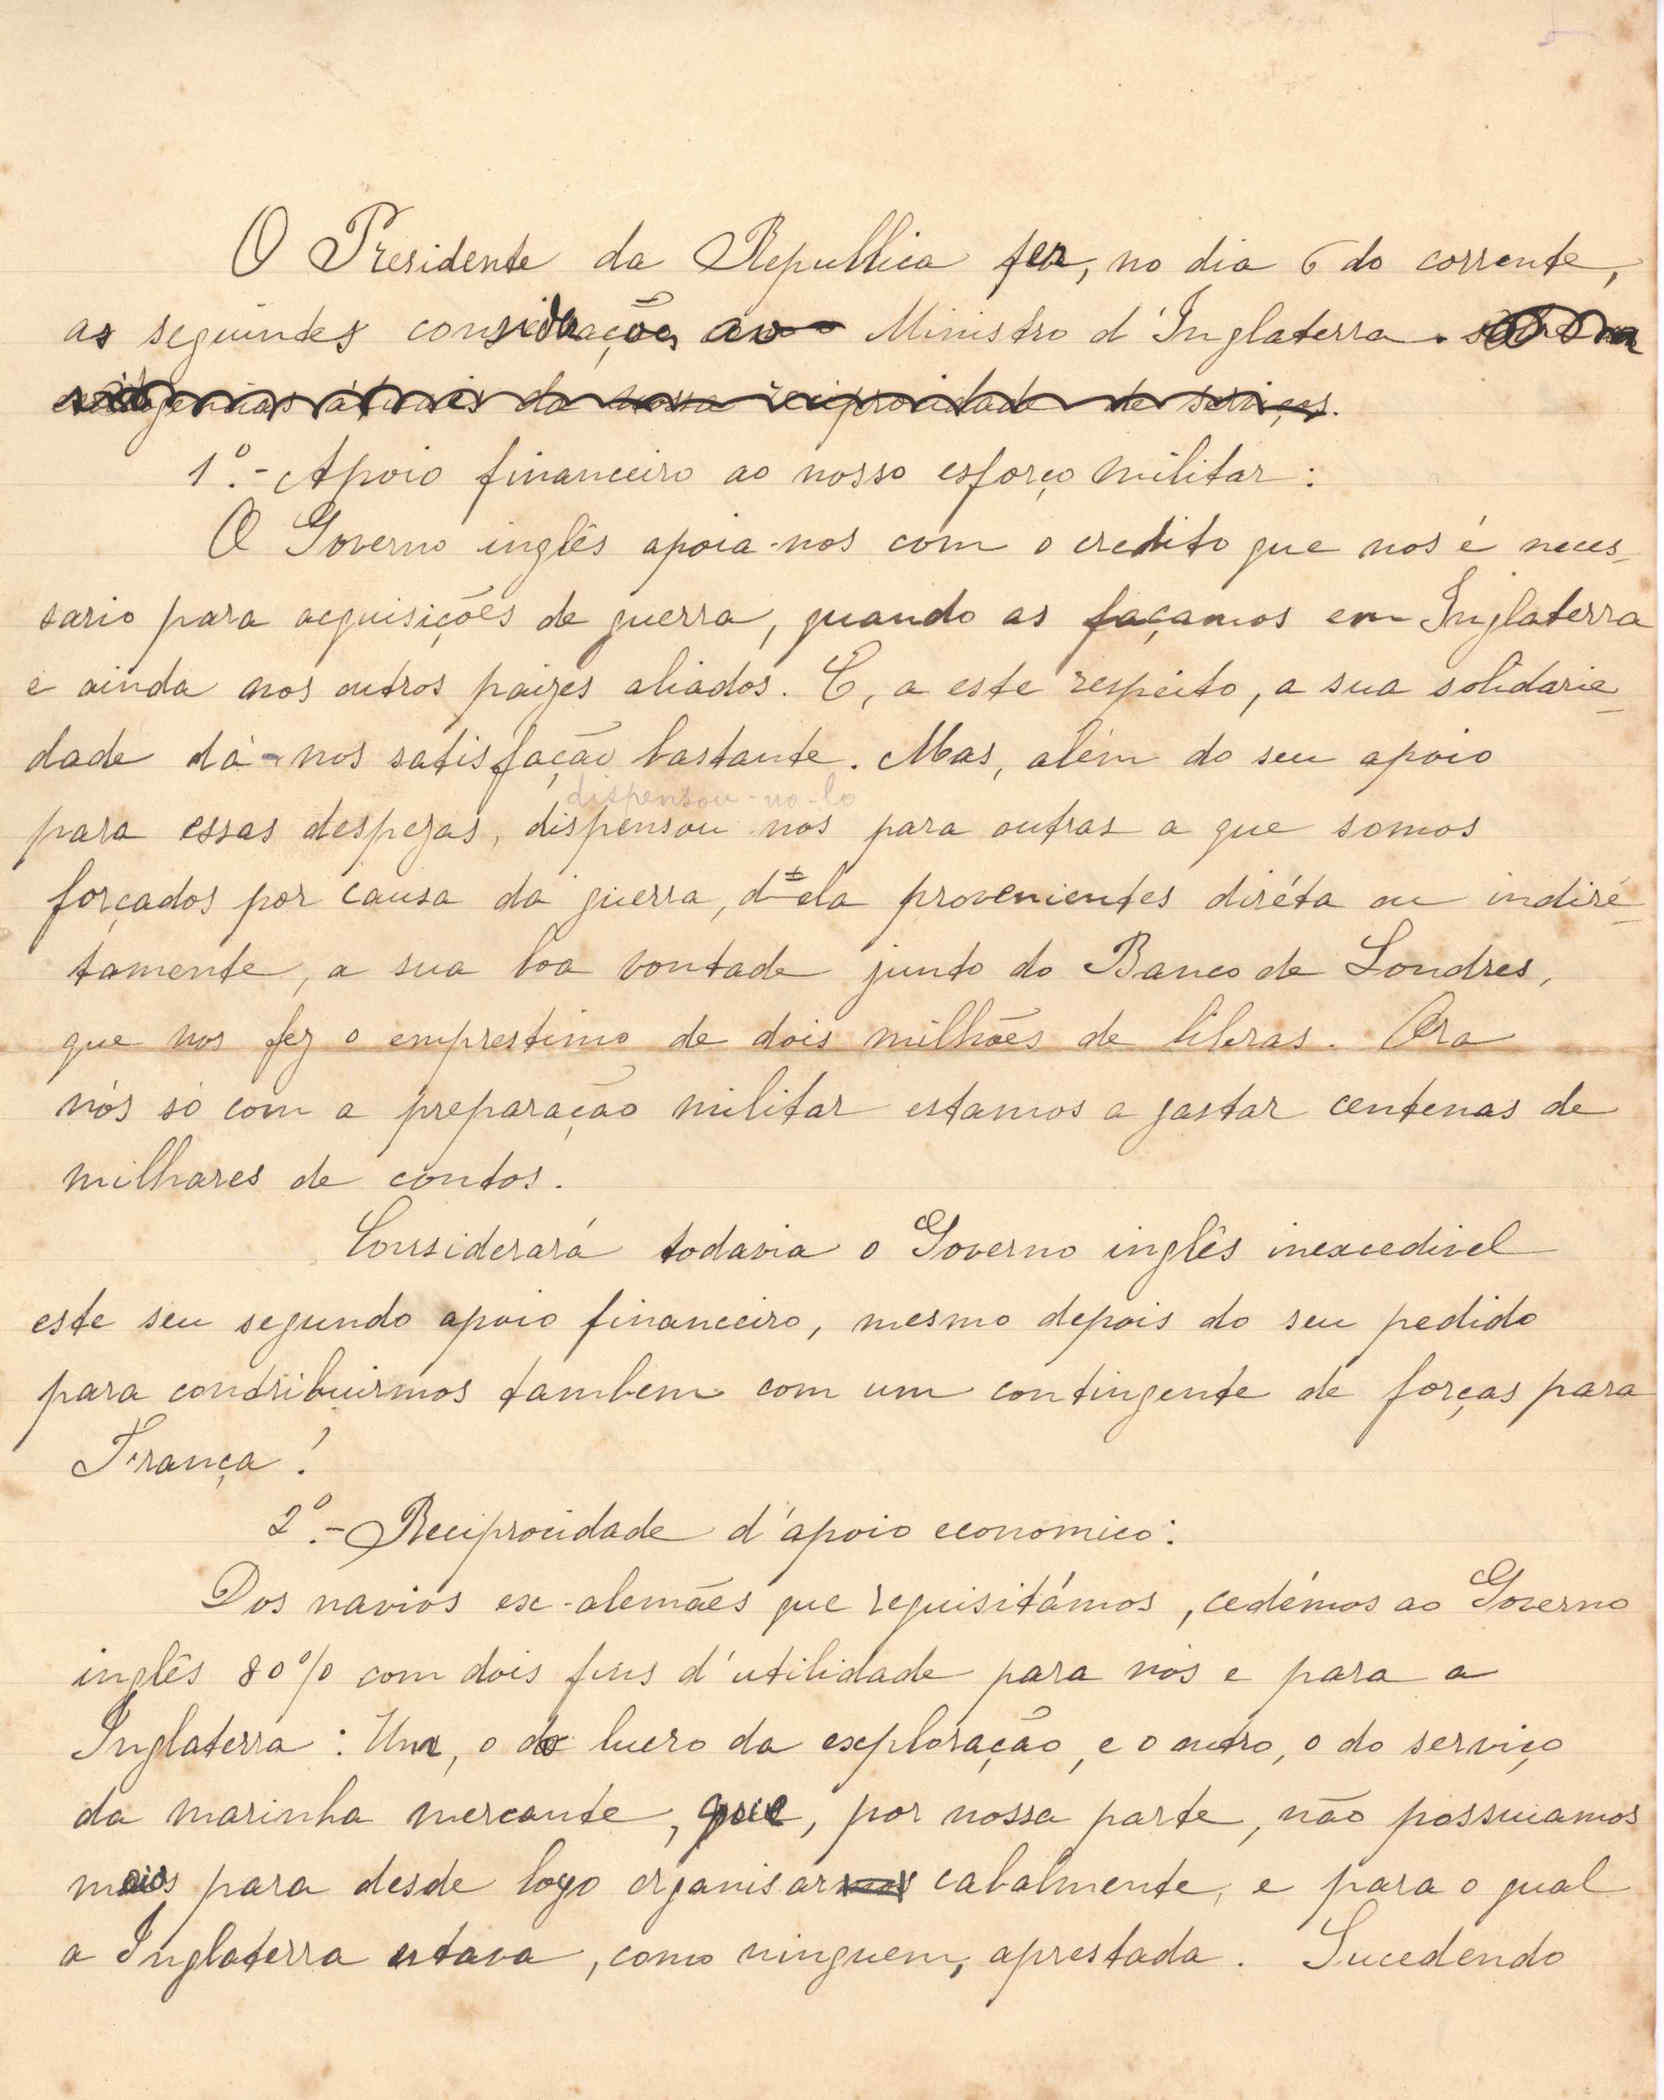 O Presidente da Republica fez, no dia 6 do corrente,
as seguintes considerações ao Ministro d'Inglaterra.
exigencias átuais da nossa reciprocidade de serviços.
1º.- Apoio financeiro ao nosso esforço militar:
O Governo inglês apoia-nos com o credito que nos é neces-
sario para acquisições de guerra, quando as façamos em Inglaterra
e ainda nos outros paizes aliados. E, a este respeito, a sua solidarie-
dade dá-nos satisfação bastante. Mas, além do seu apoio
dispensou-no-lo
para essas despezas, dispensou nos para outras a que somos
forçados por causa da guerra, d'ela provenientes diréta ou indiré-
tamente, a sua boa vontade junto do Banco de Londres,
que nos fez o emprestimo de dois milhões de libras. Ora
nós só com a preparação militar estamos a gastar centenas de
milhares de contos.
Considerará todavia o Governo inglês inexcedivel
este seu segundo apoio financeiro, mesmo depois do seu pedido
para contribuirmos tambem com um contingente de forças para
França!
2º.- Reciprocidade d'apoio economico:
Dos navios ex-alemães que requisitámos, cedémos ao Governo
inglês 80% com dois fins d'utilidade para nós e para a
Inglaterra: Um, o do lucro da exploração, e o outro, o do serviço
da marinha mercante, que, por nossa parte, não possuiamos
meios para desde logo organisar cabalmente, e para o qual
a Inglaterra estava, como ninguem, aprestada. Sucedendo